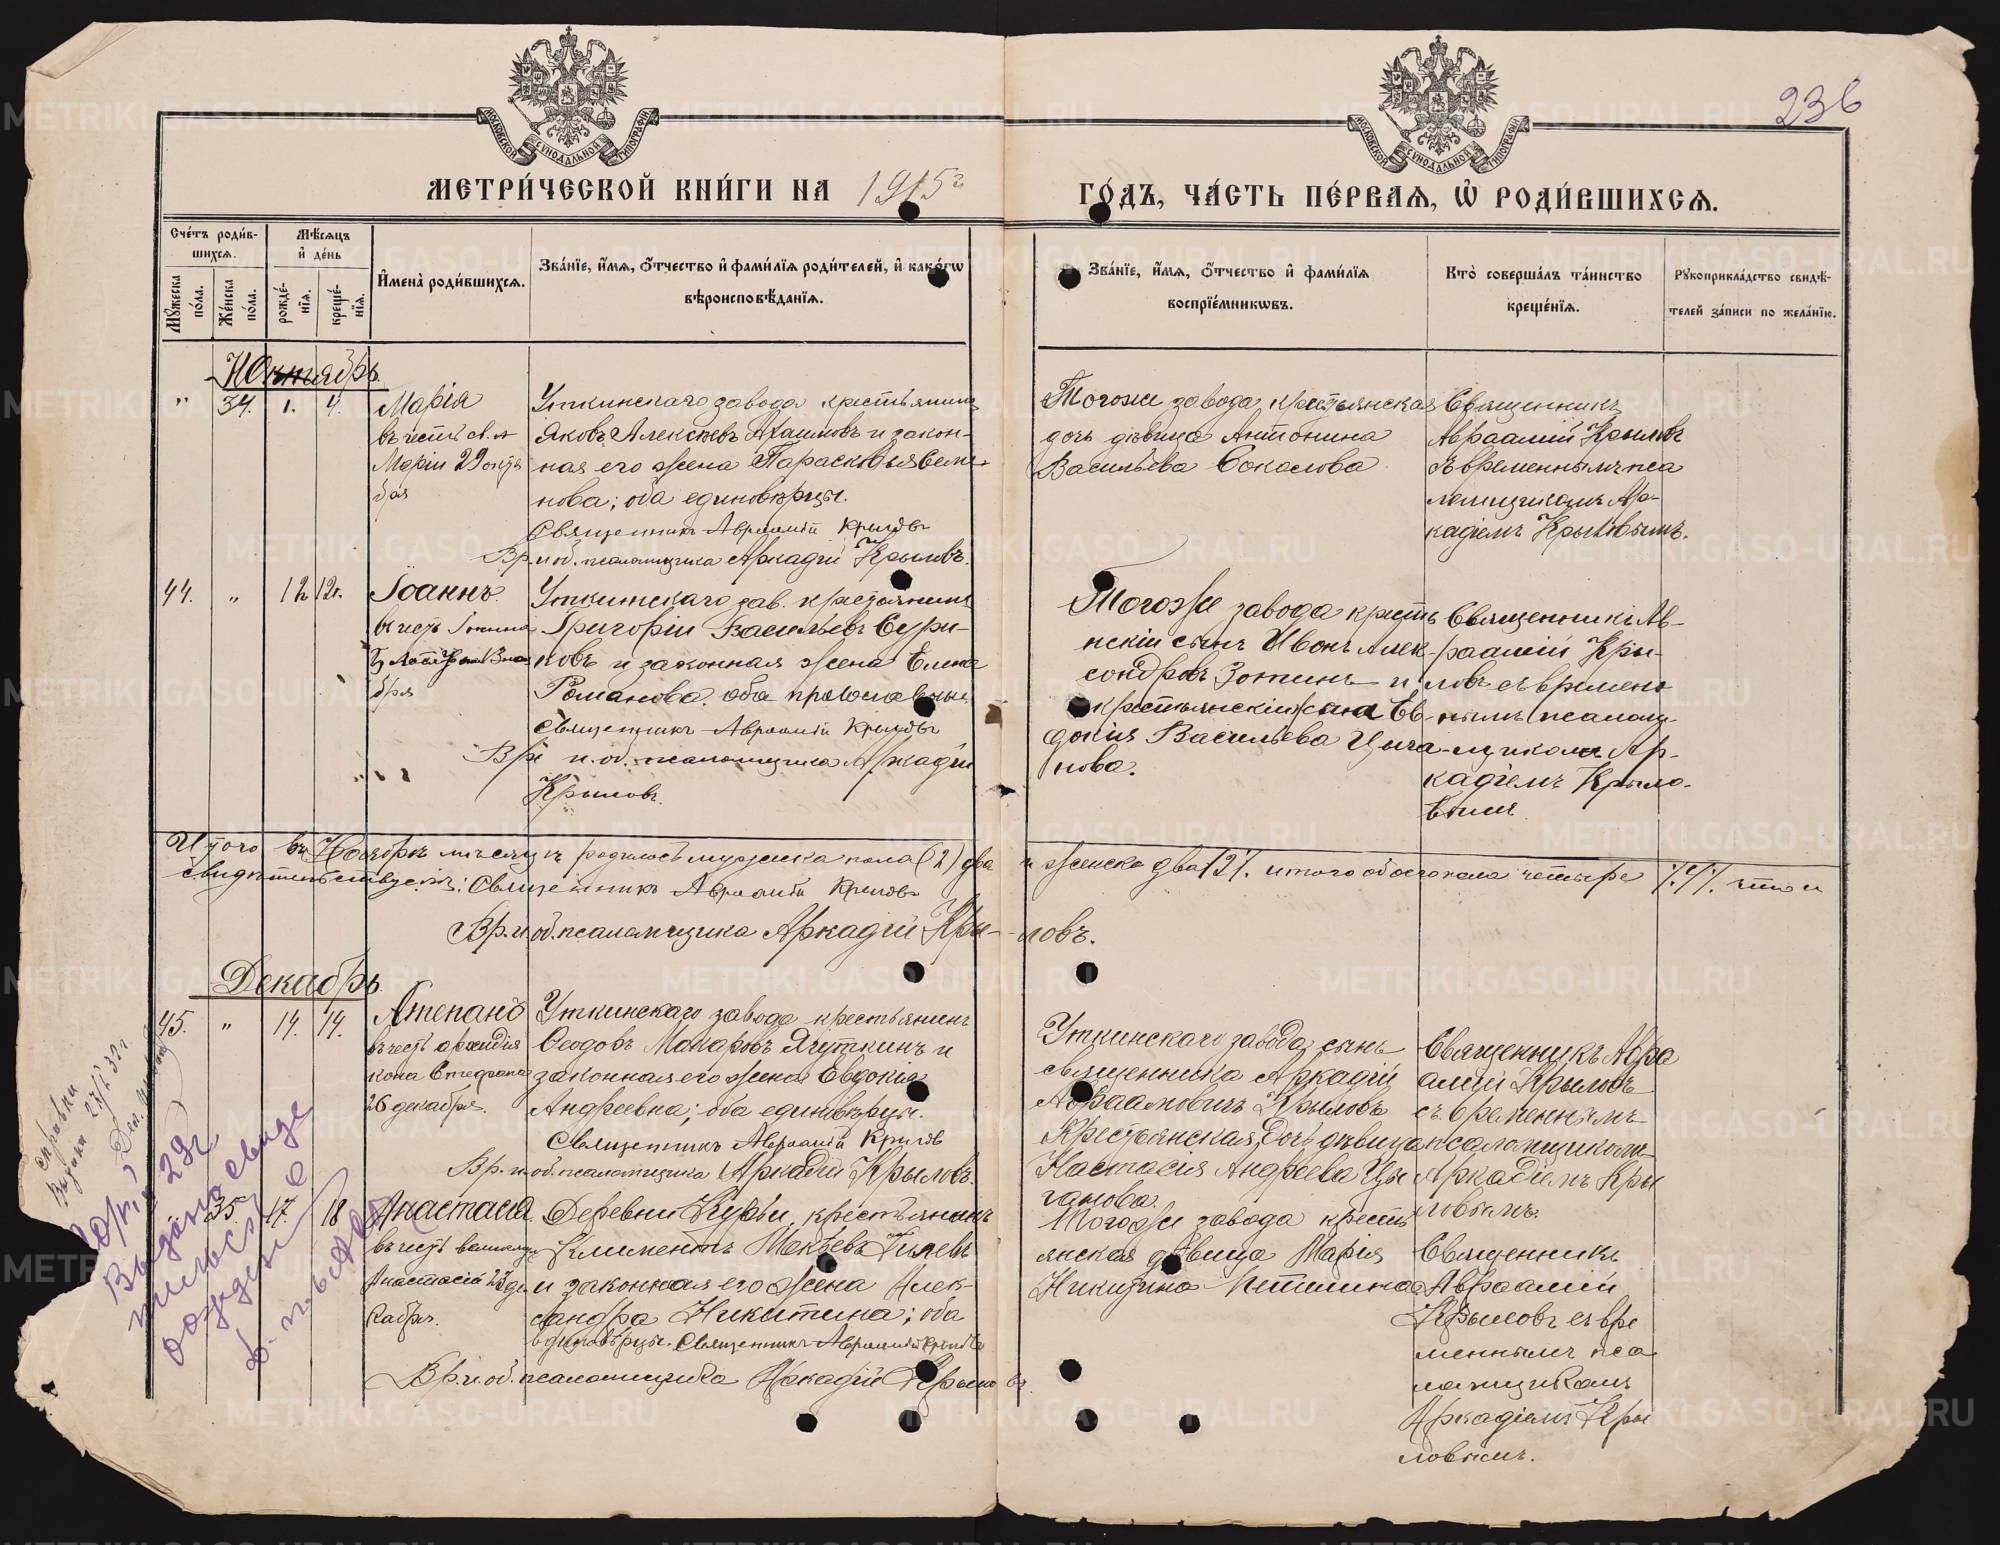 236
МОСКОВСКОЙ СѴНОДАЛЬНОЙ ТИПОГРАФІИ
МОСКОВСКОЙ СѴНОДАЛЬНОЙ ТИПОГРАФІИ
МЕТРИ́ЧЕСКОЙ КНИ́ГИ НА 1915 г
ГО́ДЪ, ЧА́СТЬ ПЕ́РВАѦ, Ѡ҆ РОДИ́ВШИХСѦ.
Сче́тъ роди́в-
шихсѧ.
Мꙋ́жеска по́ла.
Же́нска по́ла.
Мѣ́сѧцъ
и҆ де́нь
рожде́-
нїѧ.
креще́-
нїѧ.
И҆мена̀ роди́вшихсѧ.
Зва́нїе, и҆́мѧ, ѻ҆́тчество и҆ фами́лїѧ роди́телей, и҆ како́гѡ
вѣроисповѣ́данїѧ.
Зва́нїе, и҆́мѧ, ѻ҆́тчество и҆ фами́лїѧ
воспрїе́мникѡвъ.
Кто̀ соверша́лъ та́инство
креще́нїѧ.
Рꙋкоприкла́дство свидѣ́-
телей за́писи по жела́нїю.
" 34. 1. 4. Марія
въ честь
Маріи 29 октя
бря
Уткинскаго завода крестьянинъ
Яковъ Алексѣевъ и закон-
ная его жена Парасковья Семе-
нова; оба единовѣрцы.
Священникъ Авраамій Крыловъ
Вр. и. об. псаломщика Аркадій Крыловъ.
Тогоже завода крестьянская
дочь дѣвица Антонина
Васильева Соколова
Священникъ
Авраамій Крыловъ
съ временнымъ пса
ломщикомъ Ар-
кадіемъ Крыловымъ.
44. " 12 12. Іоаннъ.
въ честь Іоанна
бря
Уткинскаго зав. крестьянинъ
Григорій Васильевъ Сури-
ковъ и законная жена Елена
Романова. оба православные.
Священникъ Авраамій Крыловъ
Вр. и. об. псаломщика Аркадій
Крыловъ.
Тогоже завода кресть
нскій сынъ Иванъ Алек-
сандровъ Зотинъ и
крестьянскій жена Ев-
докія Васильева Цыга-
нова.
Священникъ Ав-
раамій Кры-
ловъ съ времен
нымъ псалом-
щикомъ Ар-
кадіемъ Крыло-
вымъ
Итого въ Ноябрѣ мѣсяцѣ родилось мужска пола (2) два и женска два /2/. итого обоего пола четыре /4/. что и
свидѣтельствуемъ: Священникъ Авраамій Крыловъ
Вр. и. об. псаломщика Аркадій Кры-ловъ.
Декабрь
45. " 14. 14. Степанъ
въ честь архидія
кона Стефана
26 декабря.
Уткинскаго завода крестьянинъ
Феодоръ Макаровъ Ячуткинъ и
законная его жена Евдокія
Андреевна; оба единовѣрцы.
Священникъ Авраамій Крылов
Вр. и. об. псаломщика Аркадій Крыловъ.
Уткинскаго завода, сынъ
священника Аркадій
Авраамовичъ Крыловъ
Крестьянская дочь дѣвица
Настасія Андреева Цы
ганова.
Священникъ Авра
амій Крыловъ
съ временнымъ
псаломщикомъ
Аркадіемъ Кры
ловымъ.
35 17. 18 Анастасія
въ честь великому
Анастасіи 22 де
кабря.
Деревни Курьи, крестьянинъ
Климентъ Гилевъ
и законная его жена Алек-
сандра Никитина; оба
единовѣрцы. Священникъ Авраамій Крыловъ
Вр. и. об. псаломщика Аркадій Крыловъ.
Тогоже завода кресть
янская дѣвица Марія
Никитина
Священникъ
Авраамій
Крыловъ съ вре
меннымъ пса
ломщикомъ
Аркадіемъ Кры
ловымъ.
справка
29 г
Выдано свиде
тельство
рождени